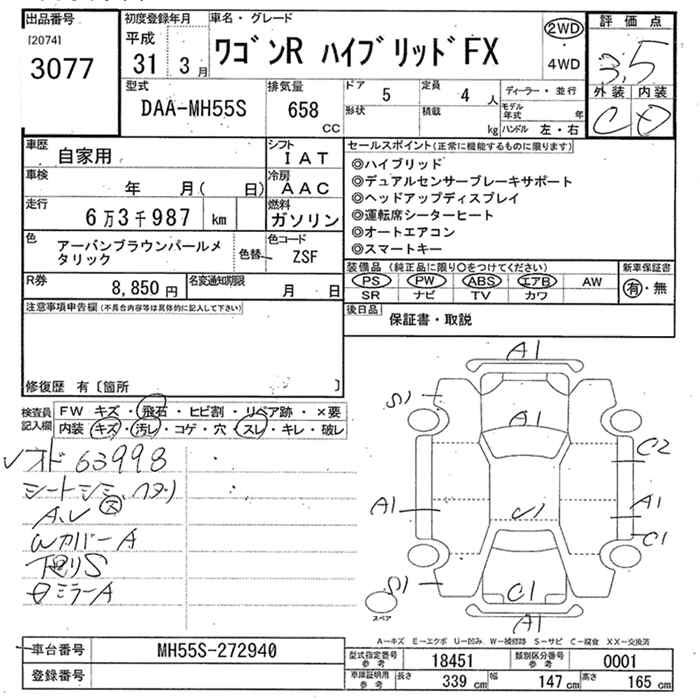 出品番号 初度登録年月 車名・グレード 評価点
[2074] 平成 2WD
3077 31 3月 ワゴンR ハイブリッドFX 4WD 3.5
型式 排気量 ドア 定員 ディーラー・並行 外装 内装
DAA-MH55S 658 CC 5 4人 モデル年式 年 C D
形状 積載 kg ハンドル 左・右
車歴 自家用 シフト IAT セールスポイント(正常に機能するものに限ります)
車検 年 月( 日) 冷房 AAC ◎ハイブリッド
走行 6万3千987 km 燃料 ガソリン ◎デュアルセンサーブレーキサポート
◎ヘッドアップディスプレイ
◎運転席シーターヒート
◎オートエアコン
◎スマートキー
色 アーバンブラウンパールメタリック 色替 色コード ZSF
R券 8,850円 名変通知期限 月 日
装備品 (純正品に限り○をつけてください) 新車保証書
PS PW ABS エアB AW 有・無
SR ナビ TV カワ
注意事項申告欄(不具合内容等は具体的に記入して下さい)
後日品 保証書・取説
修復歴 有〔箇所 〕
検査員記入欄 FW キズ・飛石・ヒビ割・リペア跡・×要
内装 キズ・汚レ・コゲ・穴・スレ・キレ・破レ
63998
A1
S1
A1
C2
A1
A1
C1
S1
C1
A1
スペア
A-キズ E-エクボ U-凹み W-補修跡 S-サビ C-腐食 XX-交換済
車台番号 MH55S-272940
登録番号
型式指定番号 参考 18451 類別区分番号 参考 0001
車庫証明用 参考 長さ 339 cm 幅 147 cm 高さ 165 cm